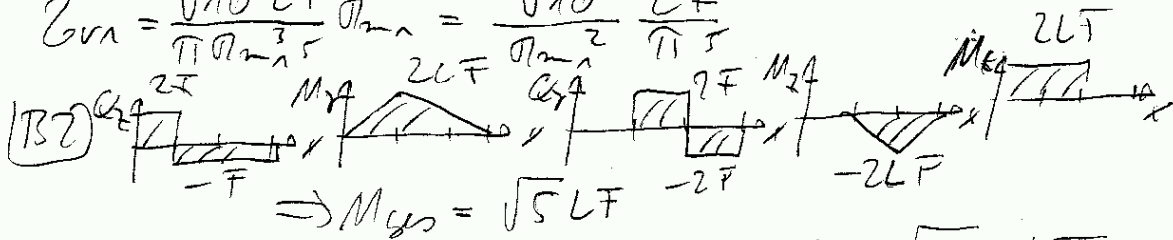 τ_vn = √10 LF / (π Π_m^3 5) Π_m = √10 / Π_m^2 LF / (π 5)
B2 Q_z 2F -F x M_y 2LF x Q_y 2F -2F x M_z -2LF x M_t 2LF x
⇒ M_ges = √5 LF